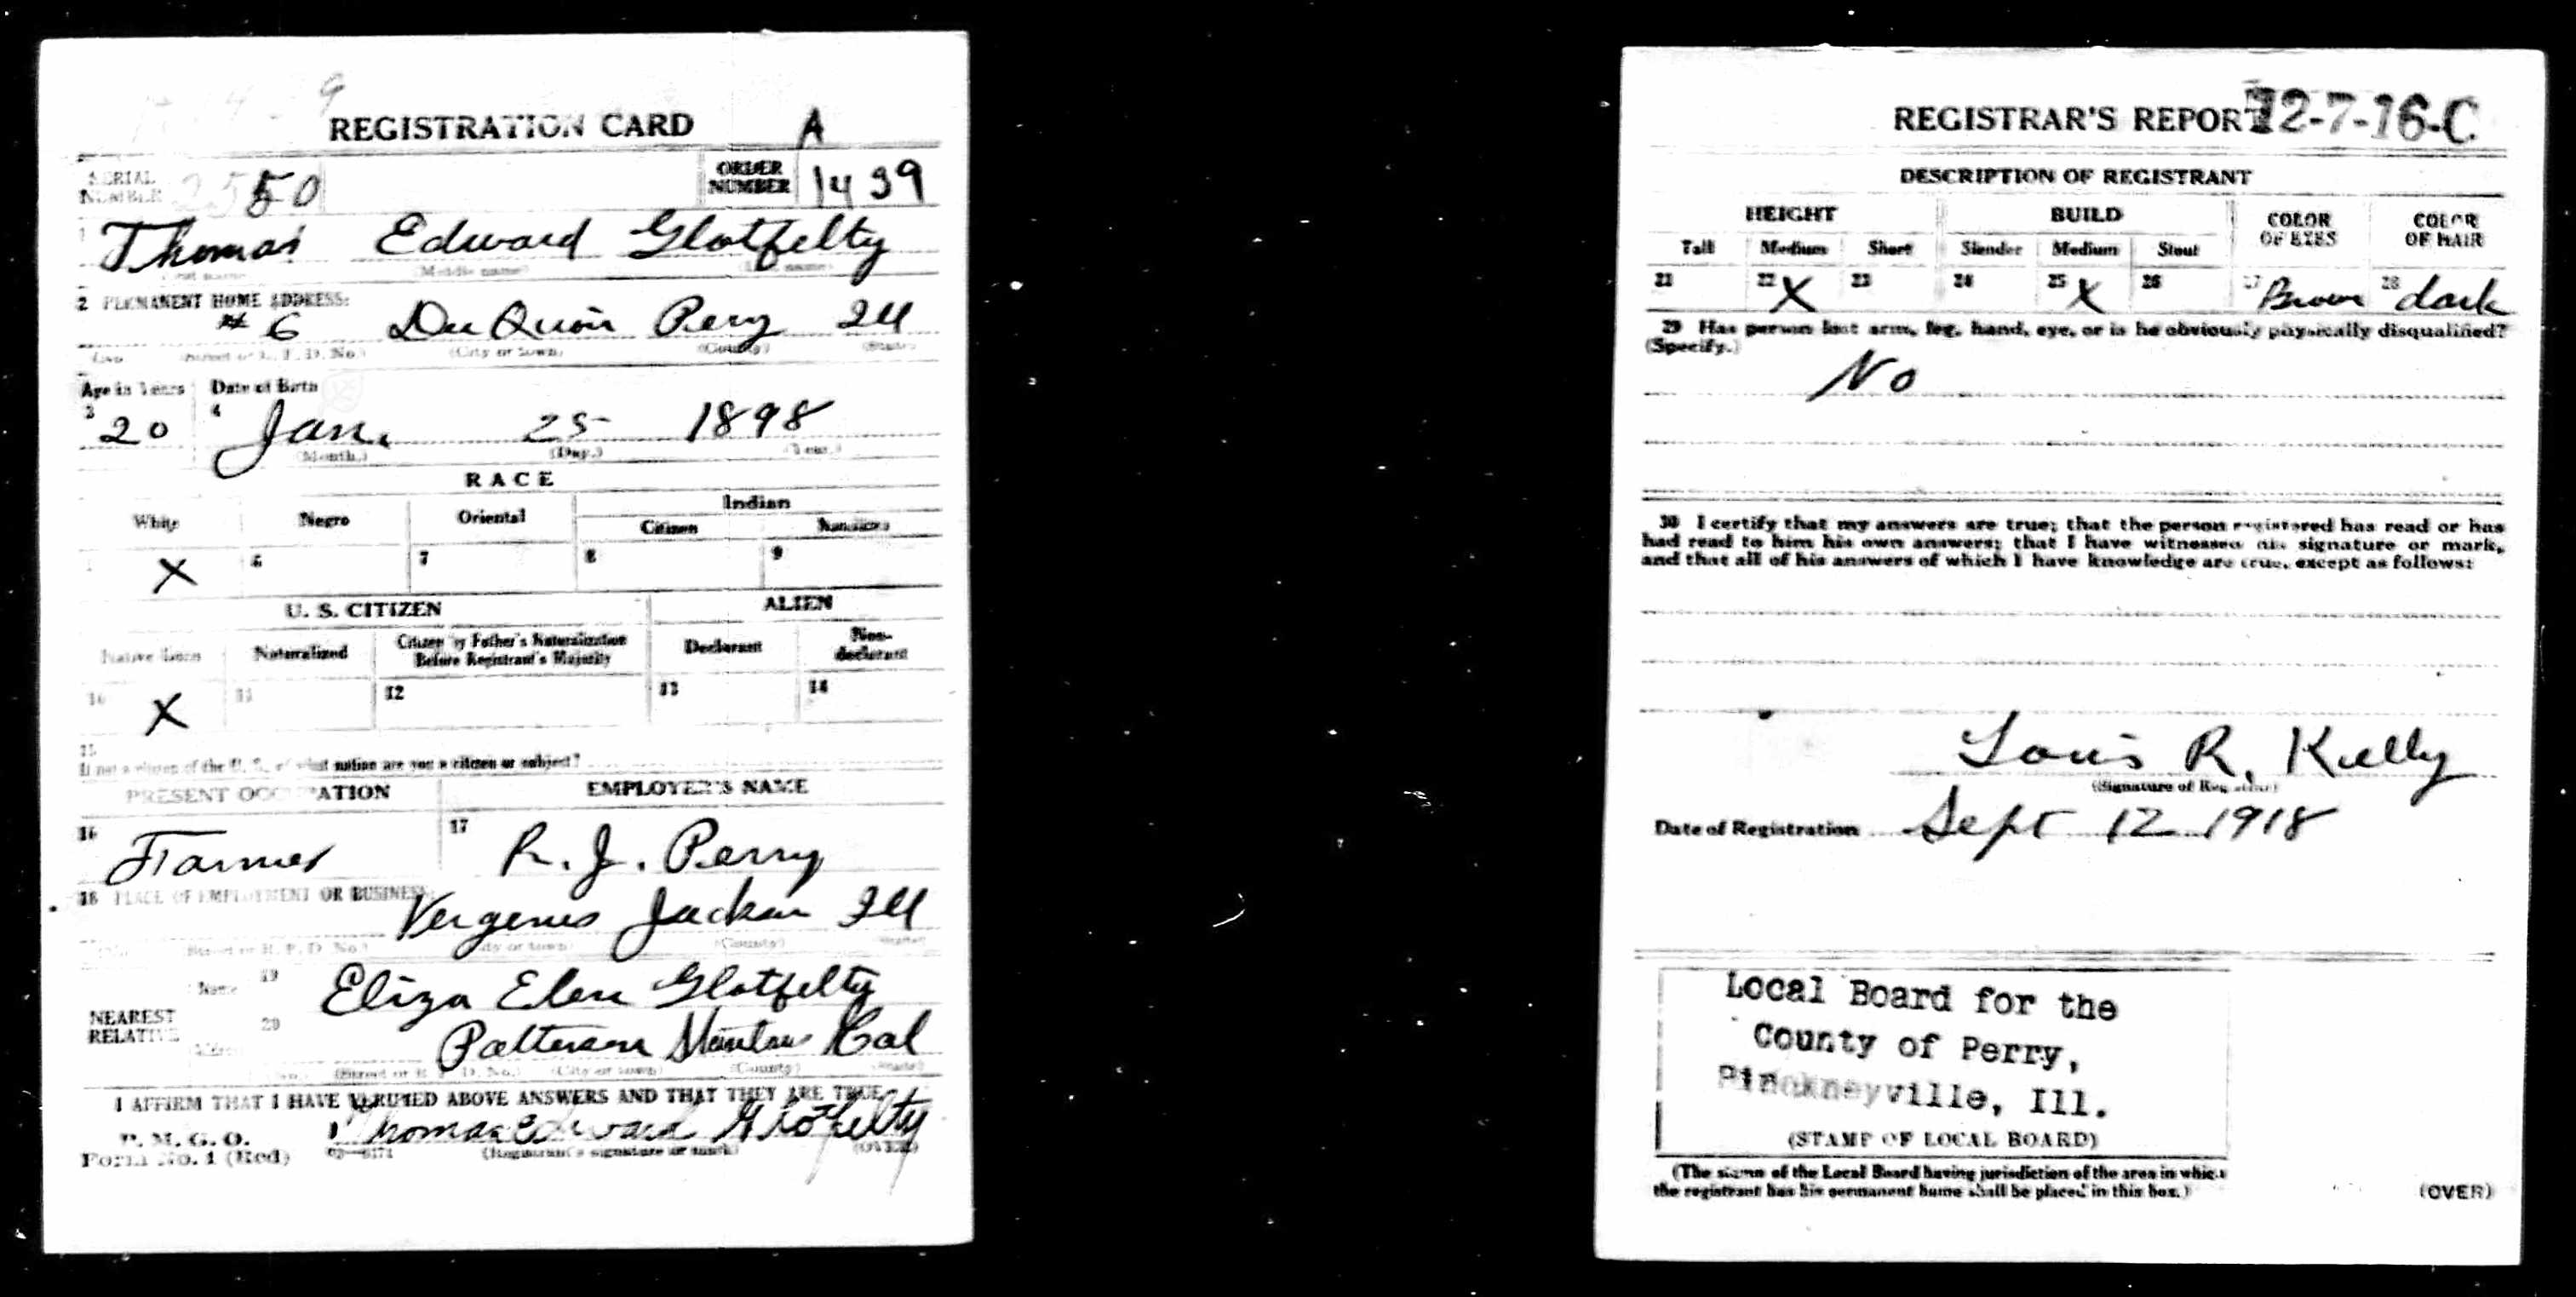 REGISTRATION CARD A
SERIAL NUMBER 2550 ORDER NUMBER 1439
1 Thomas Edward Glotfelty
(Middle name)
2 PERMANENT HOME ADDRESS:
# 6 Du Quoin Pery Ill
(City or town) (County) (State)
Age in Years Date of Birth
3 20 4 Jan. 25 1898
(Month.) (Day.) (Year.)
RACE
White Negro Oriental Indian
Citizen
X 6 7 8 9
U. S. CITIZEN ALIEN
Native Born Naturalized Citizen by Father's Naturalization Before Registrant's Majority Declarant Non-declarant
10 X 11 12 13 14
15
If not a citizen of the U. S., of what nation are you a citizen or subject?
PRESENT OCCUPATION EMPLOYER'S NAME
16 Farmer 17 R. J. Perry
18 PLACE OF EMPLOYMENT OR BUSINESS:
Vergenes Jackson Ill
(Street or R. F. D. No.) (City or town) (County) (State)
NEAREST RELATIVE Name 19 Eliza Elen Glotfelty
Address 20 Patterson Cal
(Street or R. F. D. No.) (City or town) (County) (State)
I AFFIRM THAT I HAVE VERIFIED ABOVE ANSWERS AND THAT THEY ARE TRUE
P. M. G. O.
Form No. 1 (Red) Thomas Edward Glotfelty
(Registrant's signature or mark) (OVER)
REGISTRAR'S REPORT 12-7-16-C
DESCRIPTION OF REGISTRANT
HEIGHT BUILD COLOR OF EYES COLOR OF HAIR
Tall Medium Short Slender Medium Stout
21 22 X 23 24 25 X 26 27 Brown 28 dark
29 Has person lost arm, leg, hand, eye, or is he obviously physically disqualified?
(Specify.)
No
30 I certify that my answers are true; that the person registered has read or has
had read to him his own answers; that I have witnessed his signature or mark,
and that all of his answers of which I have knowledge are true, except as follows:
Louis R. Kelly
(Signature of Registrar)
Date of Registration Sept 12 1918
Local Board for the
County of Perry,
Pinckneyville, Ill.
(STAMP OF LOCAL BOARD)
(The stamp of the Local Board having jurisdiction of the area in which
the registrant has his permanent home shall be placed in this box.)
(OVER)